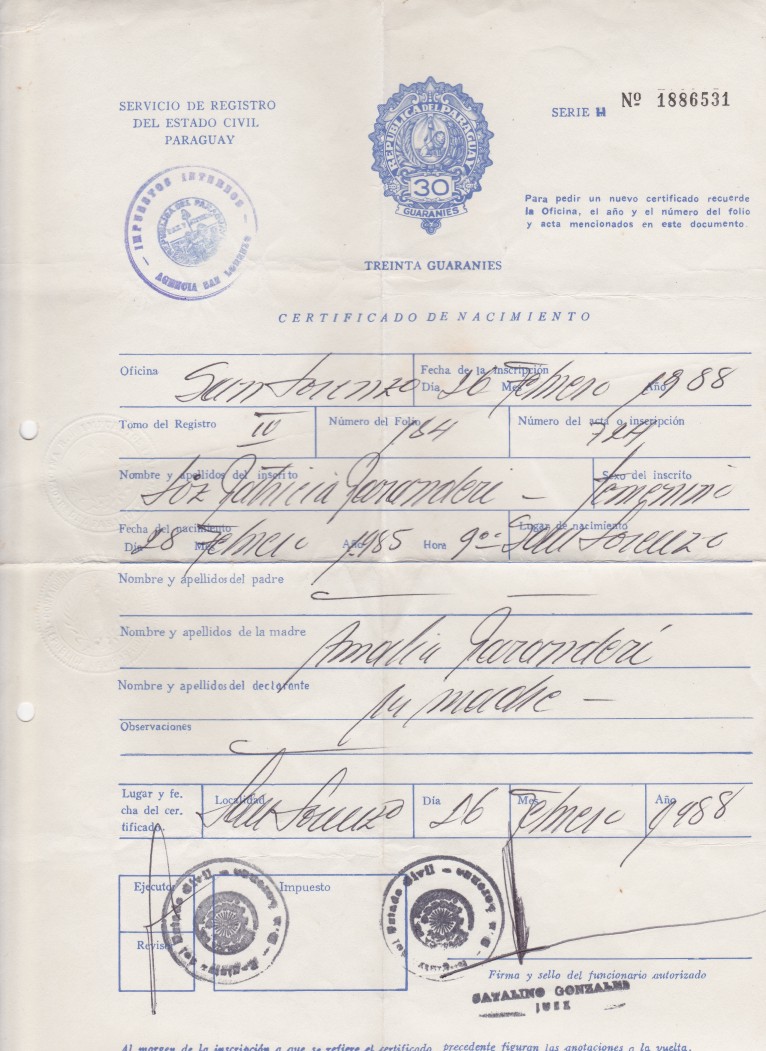 SERVICIO DE REGISTRO
DEL ESTADO CIVIL
PARAGUAY
REPUBLICA DEL PARAGUAY
30
GUARANIES
TREINTA GUARANIES
SERIE H Nº 1886531
Para pedir un nuevo certificado recuerde
la Oficina, el año y el número del folio
y acta mencionados en este documento.
IMPUESTOS INTERNOS
AGENCIA SAN LORENZO
CERTIFICADO DE NACIMIENTO
Oficina San Lorenzo Fecha de la inscripción
Día 26 Mes Febrero Año 1988
Tomo del Registro IV Número del Folio 184 Número del acta o inscripción 724
Nombre y apellidos del inscrito Patricia Sexo del inscrito Femenino
Fecha del nacimiento Lugar de nacimiento
Día 28 Mes Febrero Año 1985 Hora 9 San Lorenzo
Nombre y apellidos del padre
Nombre y apellidos de la madre Amalia
Nombre y apellidos del declarante su madre
Observaciones
Lugar y fe-
cha del cer-
tificado. Localidad San Lorenzo Día 26 Mes Febrero Año 1988
Ejecutor Impuesto
Revisor
Firma y sello del funcionario autorizado
SATALINO GONZALES
JUEZ
Al margen de la inscripción a que se refiere el certificado precedente figuran las anotaciones a la vuelta.